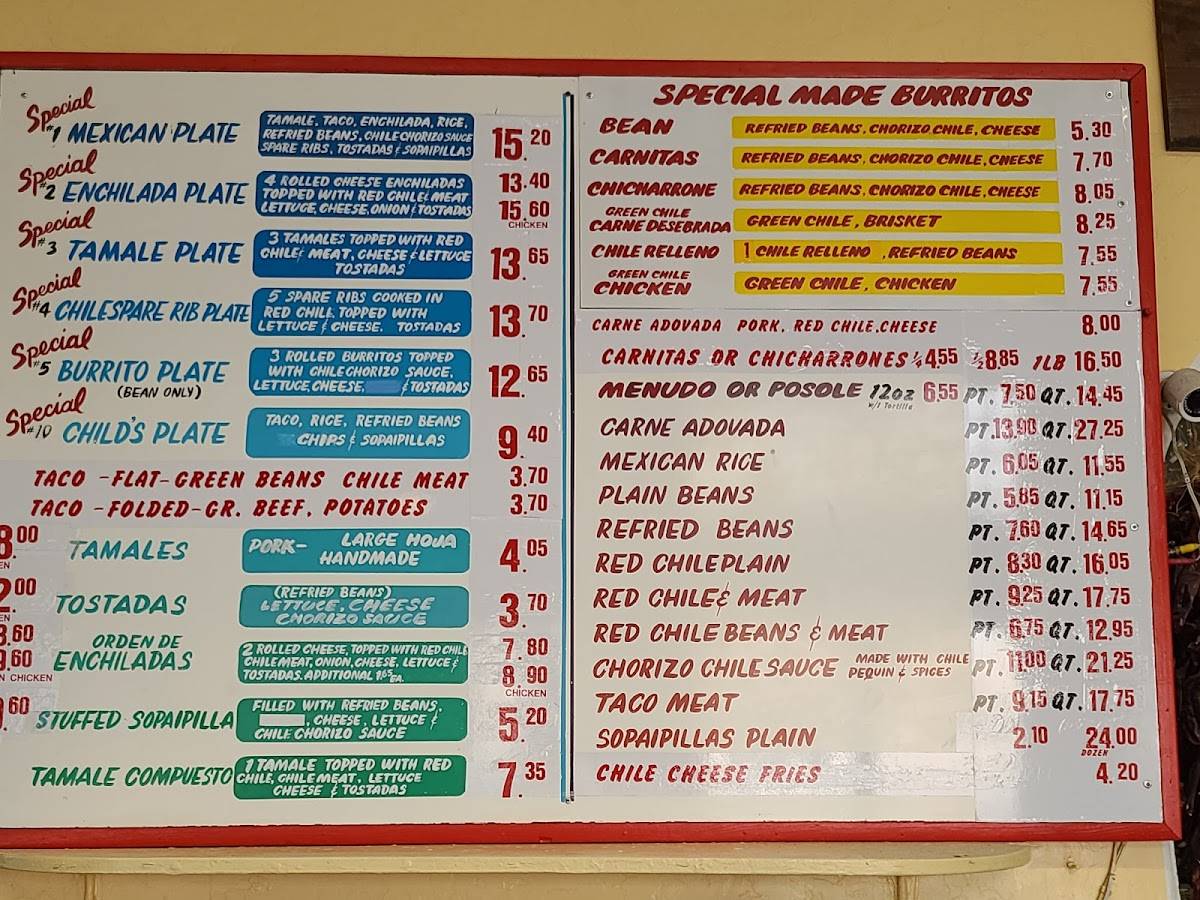 Special
#1 MEXICAN PLATE
TAMALE, TACO, ENCHILADA, RICE,
REFRIED BEANS, CHILE CHORIZO SAUCE
SPARE RIBS, TOSTADAS & SOPAIPILLAS
15.20
Special
#2 ENCHILADA PLATE
4 ROLLED CHEESE ENCHILADAS
TOPPED WITH RED CHILE & MEAT
LETTUCE, CHEESE, ONION & TOSTADAS
13.40
15.60
CHICKEN
Special
#3 TAMALE PLATE
3 TAMALES TOPPED WITH RED
CHILE MEAT, CHEESE & LETTUCE
TOSTADAS
13.65
Special
#4 CHILE SPARE RIB PLATE
5 SPARE RIBS COOKED IN
RED CHILI, TOPPED WITH
LETTUCE & CHEESE. TOSTADAS
13.70
Special
#5 BURRITO PLATE
(BEAN ONLY)
3 ROLLED BURRITOS TOPPED
WITH CHILE CHORIZO SAUCE,
LETTUCE, CHEESE, & TOSTADAS
12.65
Special
#10 CHILD'S PLATE
TACO, RICE, REFRIED BEANS
CHIPS & SOPAIPILLAS
9.40
TACO -FLAT-GREEN BEANS CHILE MEAT 3.70
TACO -FOLDED-GR. BEEF, POTATOES 3.70
8.00
TAMALES
PORK- LARGE HOJA
HANDMADE
4.05
2.00
TOSTADAS
(REFRIED BEANS)
LETTUCE, CHEESE
CHORIZO SAUCE
3.70
.60
.60
CHICKEN
ORDEN DE
ENCHILADAS
2 ROLLED CHEESE, TOPPED WITH RED CHILE
CHILE MEAT, ONION, CHEESE, LETTUCE &
TOSTADAS. ADDITIONAL 1.65 EA.
7.80
8.90
CHICKEN
.60
STUFFED SOPAIPILLA
FILLED WITH REFRIED BEANS,
, CHEESE, LETTUCE &
CHILE CHORIZO SAUCE
5.20
TAMALE COMPUESTO
1 TAMALE TOPPED WITH RED
CHILE, CHILE MEAT, LETTUCE
CHEESE & TOSTADAS
7.35
SPECIAL MADE BURRITOS
BEAN REFRIED BEANS, CHORIZO CHILE, CHEESE 5.30
CARNITAS REFRIED BEANS, CHORIZO CHILE, CHEESE 7.70
CHICHARRONE REFRIED BEANS, CHORIZO CHILE, CHEESE 8.05
GREEN CHILE
CARNE DESEBRADA GREEN CHILE, BRISKET 8.25
CHILE RELLENO 1 CHILE RELLENO ,REFRIED BEANS 7.55
GREEN CHILE
CHICKEN GREEN CHILE, CHICKEN 7.55
CARNE ADOVADA PORK, RED CHILE,CHEESE 8.00
CARNITAS OR CHICHARRONES ¼ 4.55 ½ 8.85 1LB 16.50
MENUDO OR POSOLE 12oz 6.55 PT. 7.50 QT. 14.45
W/1 Tortilla
CARNE ADOVADA PT. 13.90 QT. 27.25
MEXICAN RICE PT. 6.05 QT. 11.55
PLAIN BEANS PT. 5.85 QT. 11.15
REFRIED BEANS PT. 7.60 QT. 14.65
RED CHILE PLAIN PT. 8.30 QT. 16.05
RED CHILE & MEAT PT. 9.25 QT. 17.75
RED CHILE BEANS & MEAT PT. 6.75 QT. 12.95
CHORIZO CHILE SAUCE MADE WITH CHILE PT. 11.00 QT. 21.25
PEQUIN & SPICES
TACO MEAT PT. 9.15 QT. 17.75
SOPAIPILLAS PLAIN 2.10 24.00
DOZEN
CHILE CHEESE FRIES 4.20